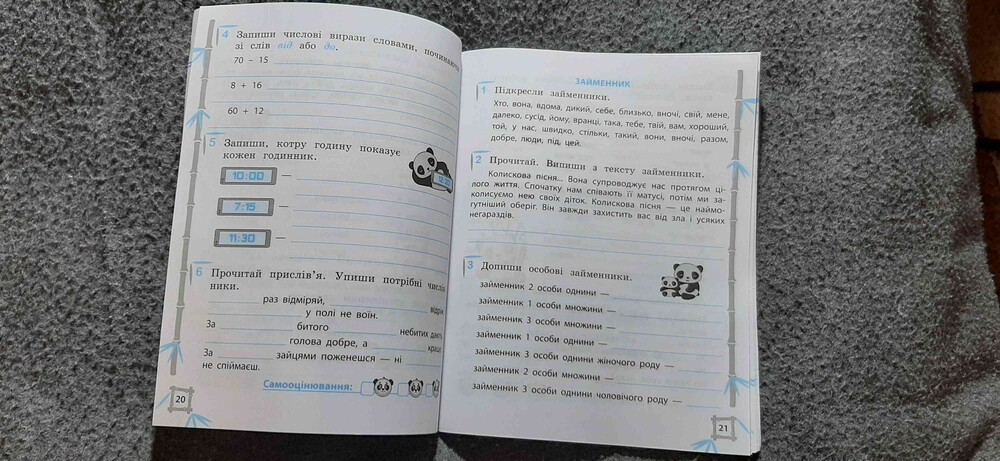 4 Запиши числові вирази словами, починаючи
зі слів від або до.
70 – 15
8 + 16
60 + 12
5 Запиши, котру годину показує
кожен годинник.
10:00 —
7:15 —
11:30 —
6 Прочитай прислів'я. Упиши потрібні числів
ники.
раз відміряй,
у полі не воїн.
За битого небитих дають
голова добре, а краще
За зайцями поженешся — ні
не спіймаєш.
Самооцінювання:
20
ЗАЙМЕННИК
1 Підкресли займенники.
Хто, вона, вдома, дикий, себе, близько, вночі, свій, мене,
далеко, сусід, йому, вранці, така, тебе, твій, вам, хороший,
той, у нас, швидко, стільки, такий, вони, вночі, разом,
добре, люди, під, цей.
2 Прочитай. Випиши з тексту займенники.
Колискова пісня... Вона супроводжує нас протягом ці-
лого життя. Спочатку нам співають її матусі, потім ми за-
колисуємо нею своїх діток. Колискова пісня — це наймо-
гутніший оберіг. Він завжди захистить вас від зла і усяких
негараздів.
3 Допиши особові займенники.
займенник 2 особи однини —
займенник 1 особи множини —
займенник 3 особи множини —
займенник 1 особи однини —
займенник 3 особи однини жіночого роду —
займенник 2 особи множини —
займенник 3 особи однини чоловічого роду —
21